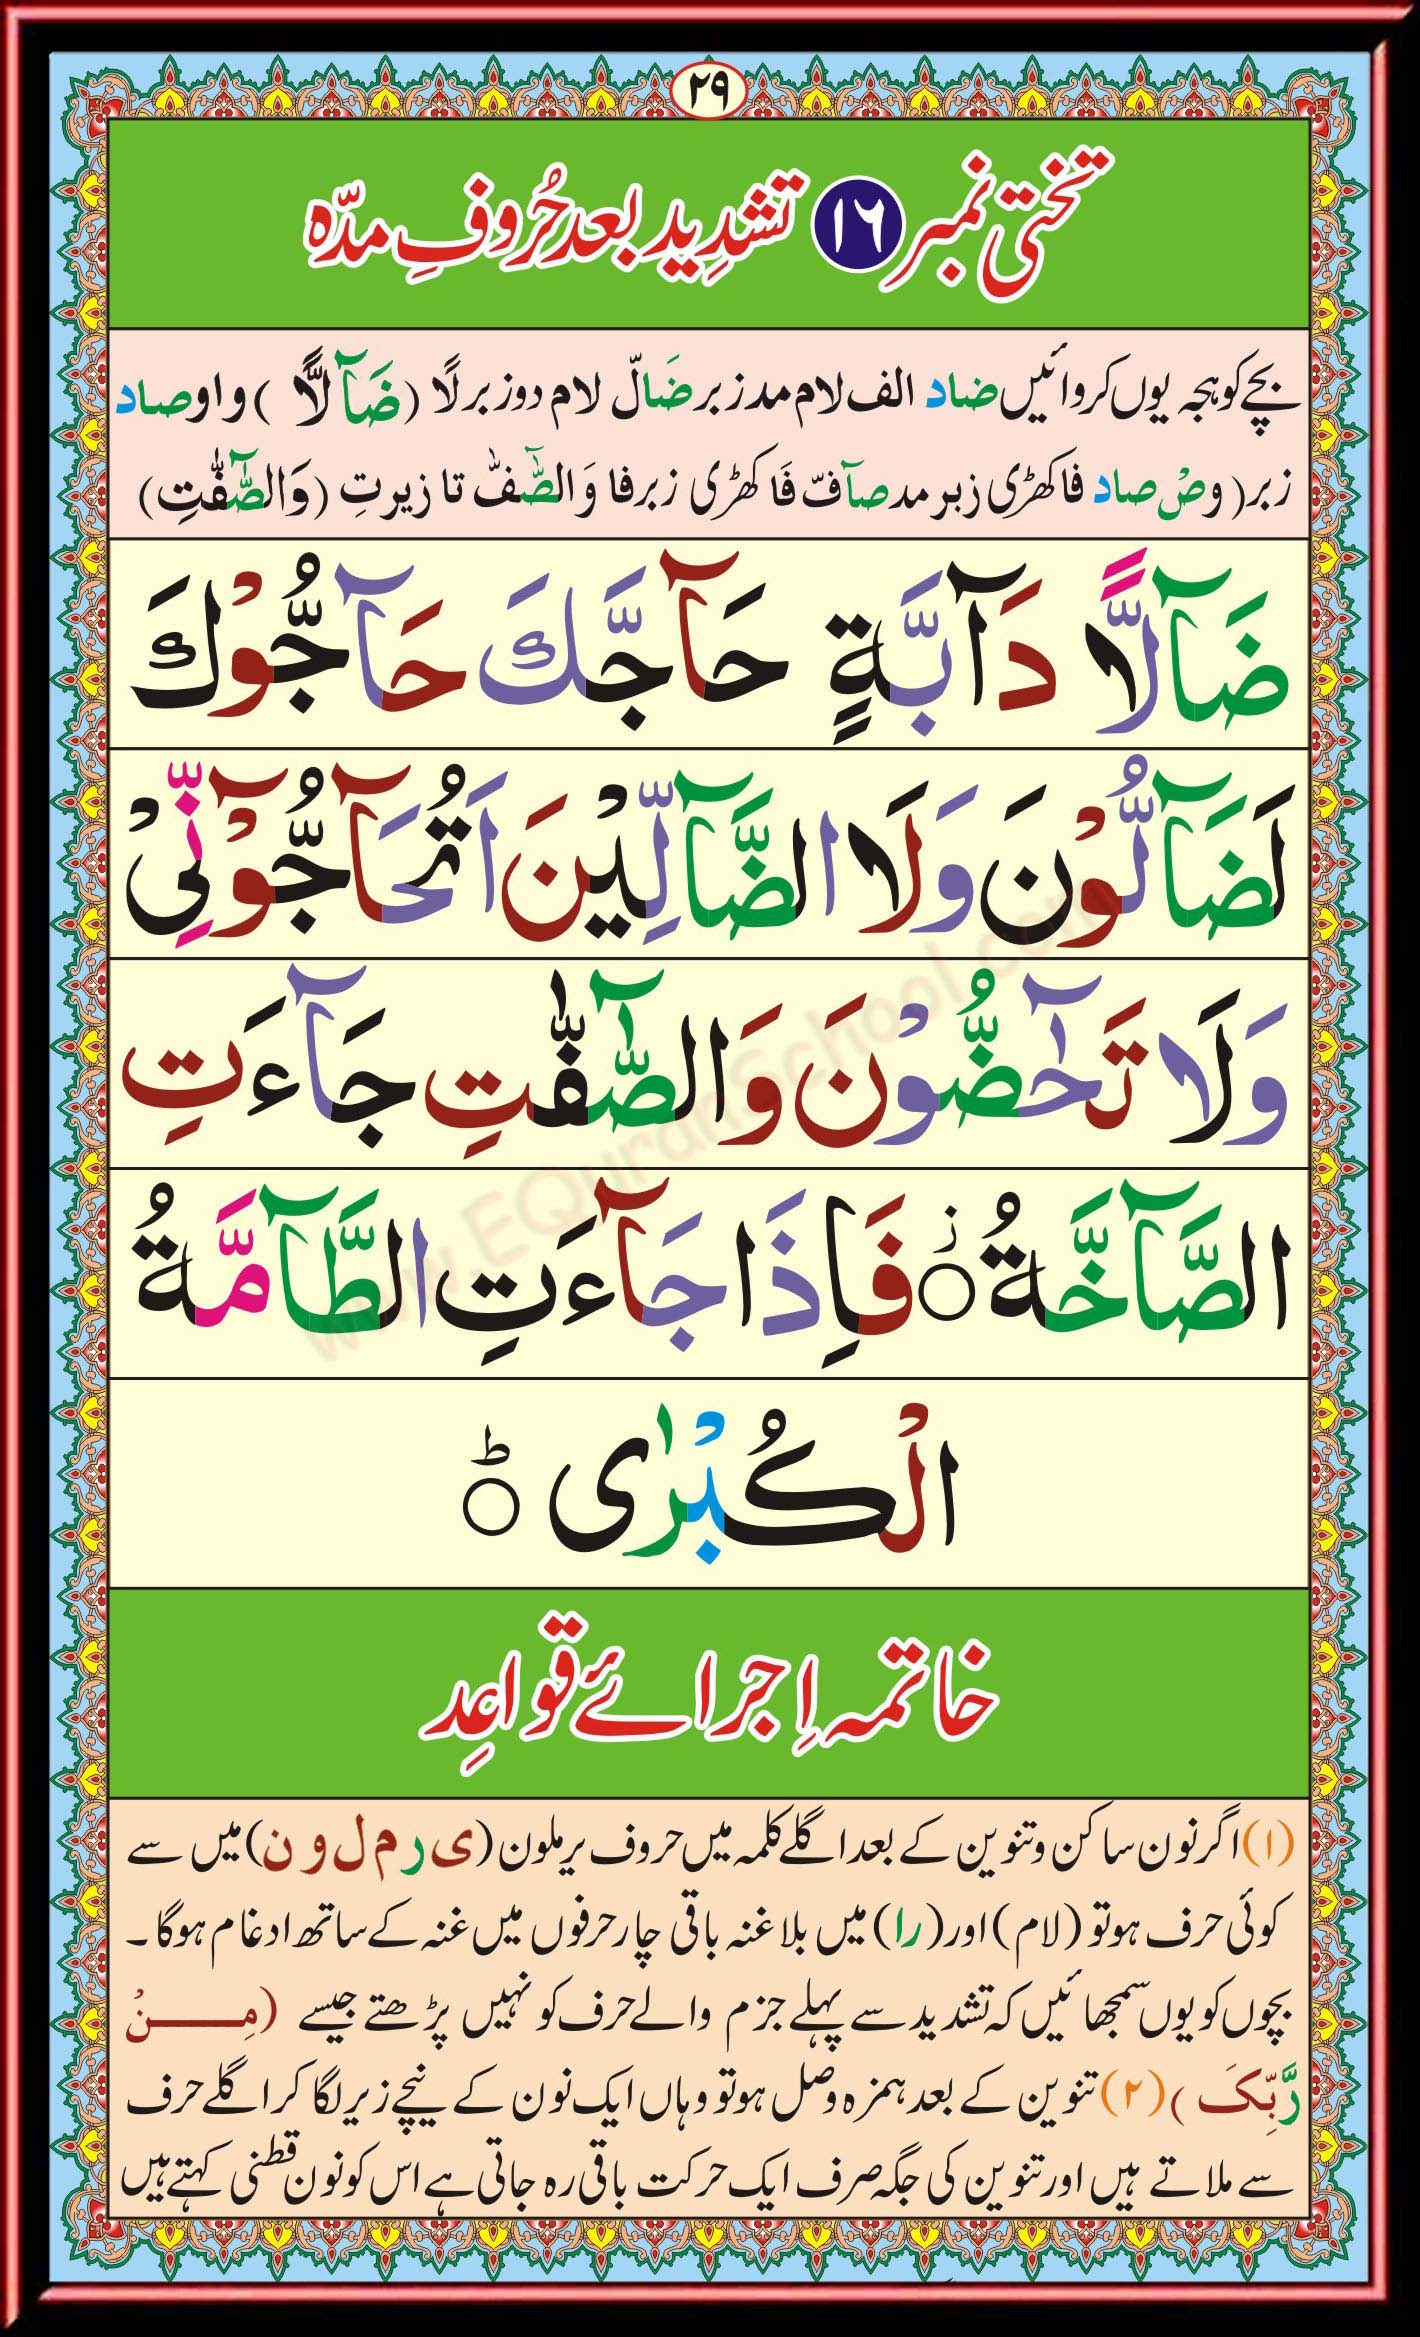 ۲۹
تختی نمبر ۱۶ تشدِید بعد حُروفِ مدّہ
بچے کو ہجہ یوں کروائیں ضاد الف لام مد زبر ضَآلّ لام دو زبر لًا (ضَآلًّا) واو صاد
زبر (وصْ صاد فا کھڑی زبر مد صآفّ فَا کھڑی زبر فا وَالصّٰٓفّٰ تا زیر تِ (وَالصّٰٓفّٰتِ)
ضَآلًّا دَآبَّةٍ حَآجَّكَ حَآجُّوْكَ
لَضَآلُّوْنَ وَلَا الضَّآلِّيْنَ اَتُحَآجُّوْٓنِّيْ
وَلَا تَحٰٓضُّوْنَ وَالصّٰٓفّٰتِ جَآءَتِ
الصَّآخَّةُ ۝ز فَاِذَا جَآءَتِ الطَّآمَّةُ
الْكُبْرٰى ۝ط
خاتمہ اِجرائے قواعِد
(۱) اگر نون ساکن و تنوین کے بعد اگلے کلمہ میں حروف یرملون (ی ر م ل و ن) میں سے
کوئی حرف ہو تو (لام) اور (را) میں بلا غنہ باقی چار حرفوں میں غنہ کے ساتھ ادغام ہوگا۔
بچوں کو یوں سمجھائیں کہ تشدید سے پہلے جزم والے حرف کو نہیں پڑھتے جیسے (مِنْ
رَّبِّکَ) (۲) تنوین کے بعد ہمزہ وصل ہو تو وہاں ایک نون کے نیچے زیر لگا کر اگلے حرف
سے ملاتے ہیں اور تنوین کی جگہ صرف ایک حرکت باقی رہ جاتی ہے اس کو نون قطنی کہتے ہیں
www.EQuranSchool.com